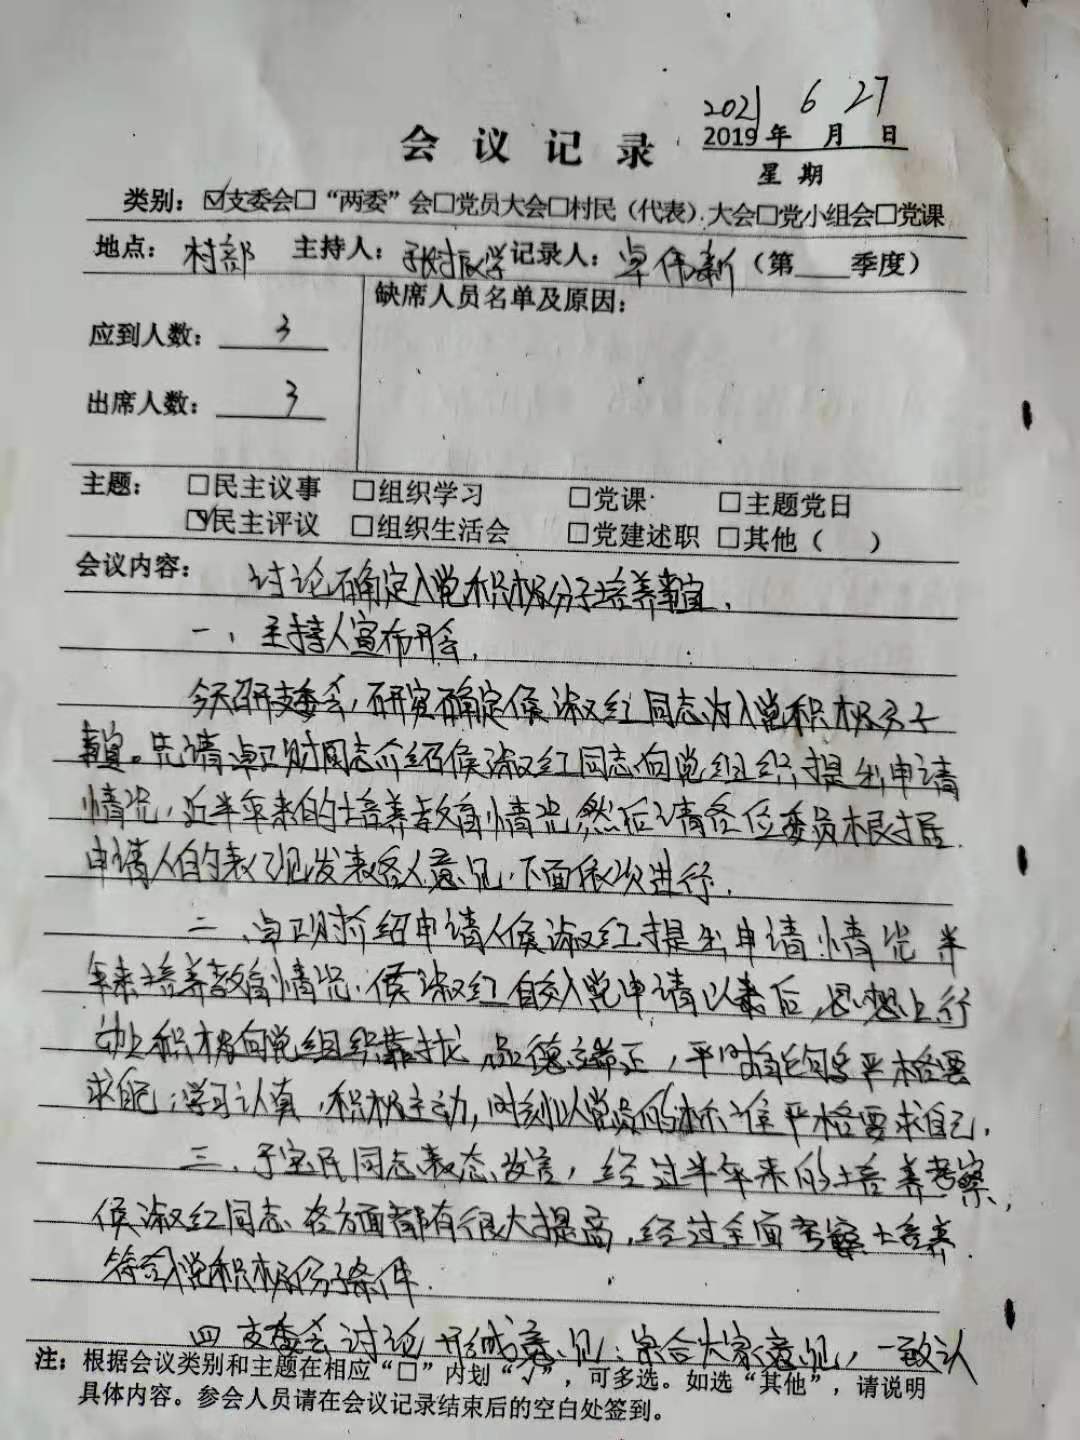 2021 6 27
会议记录 2019年 月 日
星期
类别：☑支委会□“两委”会□党员大会□村民（代表）大会□党小组会□党课
地点：村部 主持人：振学 记录人：卓伟新（第 季度）
缺席人员名单及原因：
应到人数：3
出席人数：3
主题：□民主议事 □组织学习 □党课 □主题党日
☑民主评议 □组织生活会 □党建述职 □其他（ ）
会议内容：讨论确定入党积极分子培养事宜.
一、主持人宣布开会.
今天召开支委会，研究确定侯淑红同志为入党积极分子
事宜。先请卓卫财同志介绍侯淑红同志向党组织提出申请
情况，近半年来的培养教育情况，然后请各位委员根据
申请人的表现发表各人意见.下面依次进行.
二、卓卫财介绍申请人侯淑红提出申请情况半
年来培养教育情况：侯淑红自交入党申请以来后，思想上行
动上积极向党组织靠拢，品德端正，平时能够严格要
求自己；学习认真，积极主动，时刻以党员的标准严格要求自己.
三、于宝民同志表态发言，经过半年来的培养考察，
侯淑红同志各方面都有很大提高，经过全面考察培养.
符合入党积极份子条件.
四 支委会讨论形成意见：综合大家意见，一致认
注：根据会议类别和主题在相应“□”内划“√”，可多选。如选“其他”，请说明
具体内容。参会人员请在会议记录结束后的空白处签到。